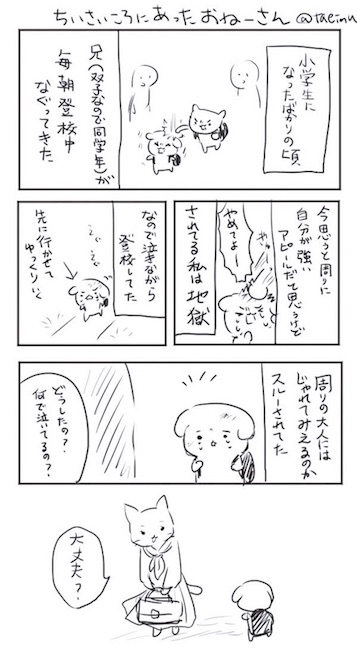 ちいさいころにあったおねーさん @taeinu
小学生に
なったばかりの頃、
兄(双子なので同学年)が
毎朝登校中
なぐってきた
今思うと周りに
自分が強い
アピールだと思うけど
やめてよー
されてる私は地獄
なので泣きながら
登校してた
先に行かせて
ゆっくりいく
周りの大人には
じゃれてみえるのか
スルーされてた
どうしたの?
何で泣いてるの?
大丈夫?